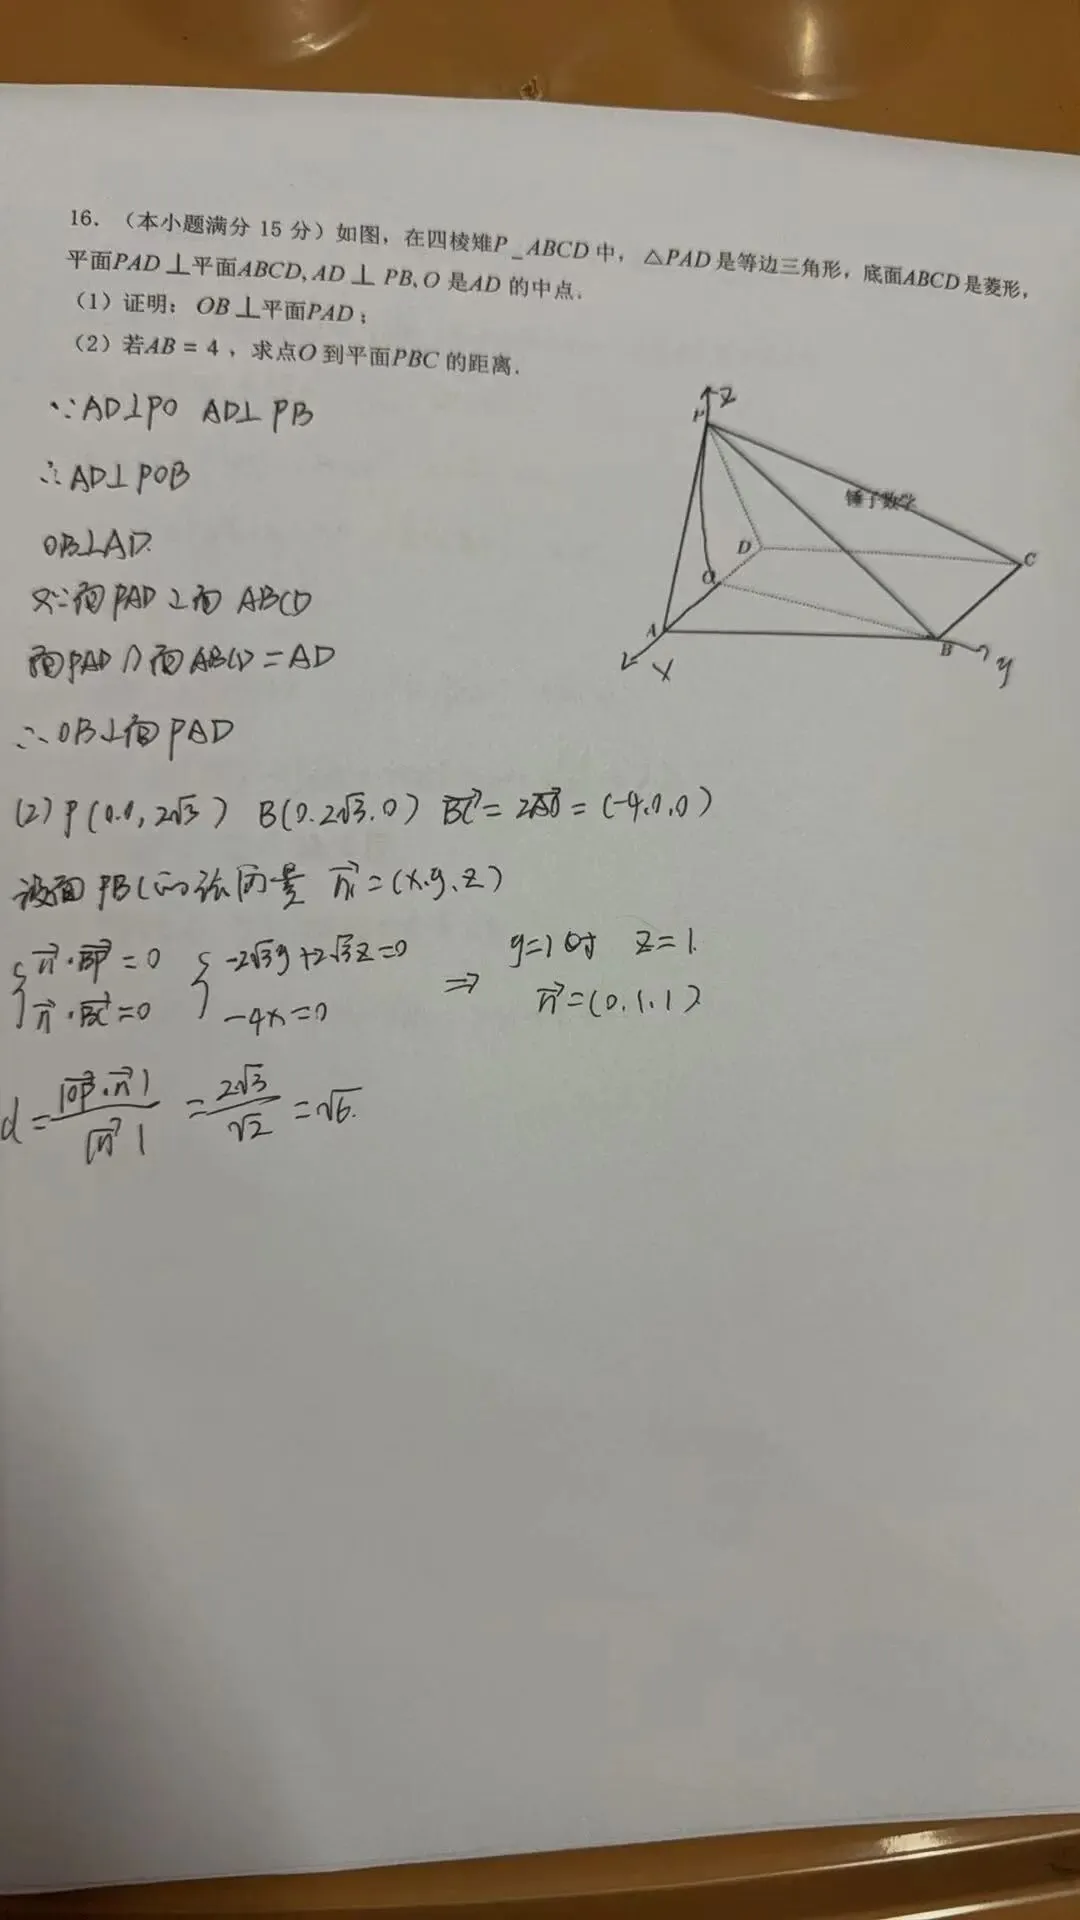 16. （本小题满分 15 分）如图，在四棱雉P_ABCD 中，△PAD 是等边三角形，底面ABCD 是菱形，
平面PAD⊥平面ABCD, AD⊥ PB, O 是AD 的中点.
（1）证明： OB⊥平面PAD；
（2）若AB = 4 ，求点O 到平面PBC 的距离.
∵AD⊥PO AD⊥PB
∴AD⊥POB
OB⊥AD.
又∵面PAD⊥面 ABCD
面PAD∩面ABCD=AD
∴OB⊥面PAD
P
Z
锤子数学
D
C
O
A
B
X
y
(2) P(0.0, 2√3) B(0.2√3.0) BC→= 2AO→ = (-4.0.0)
设面PBC的法向量 n→=(x.y.z)
{ n→·BP→=0 { -2√3y+2√3z=0 ⇒ y=1时 z=1.
n→·BC→=0 -4x=0 n→=(0.1.1)
d=|OP→·n→|/|n→| = 2√3/√2 =√6.